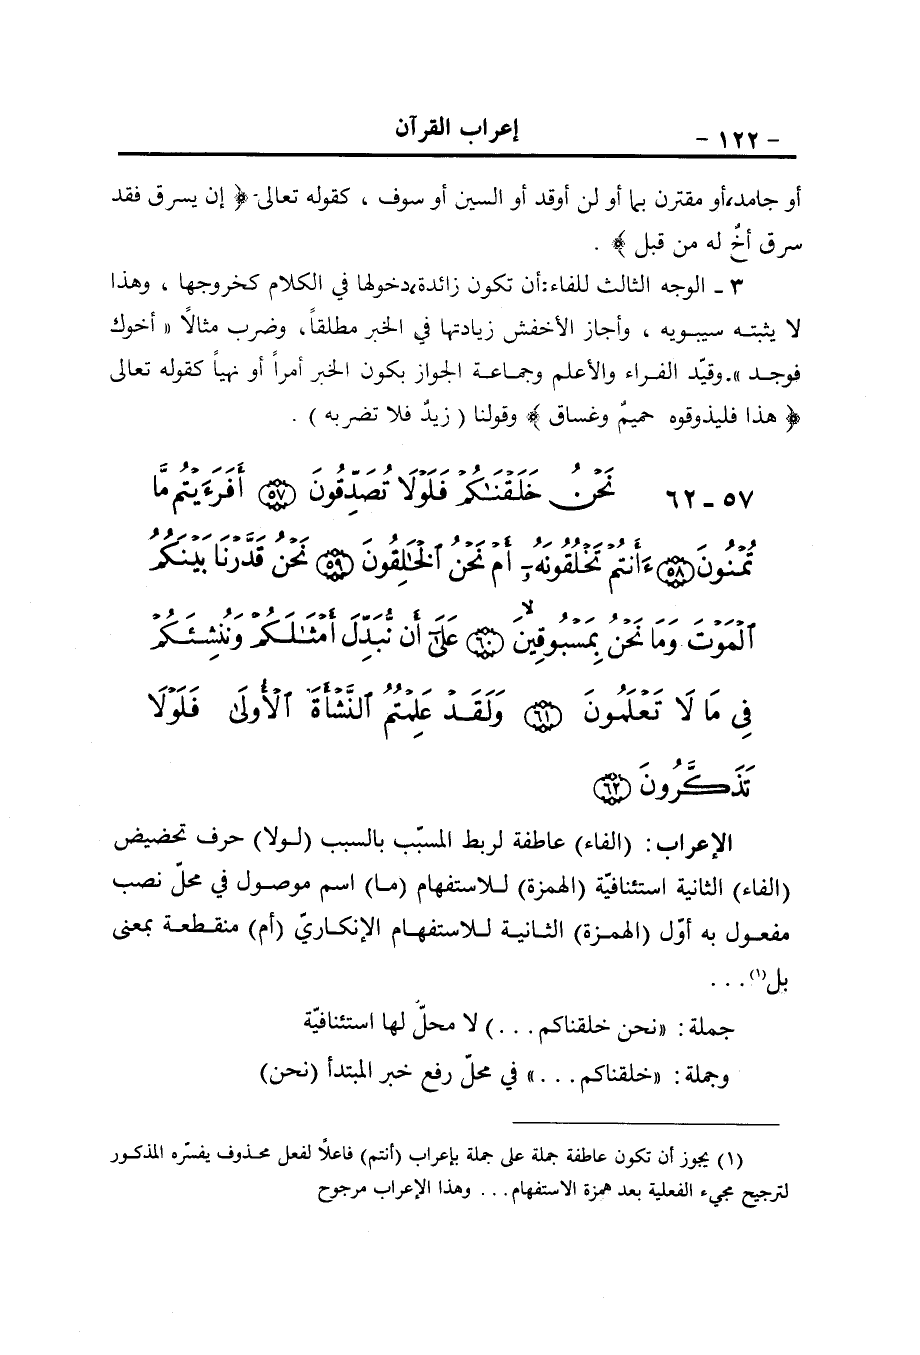 - ١٢٢ - إعراب القرآن
أو جامد، أو مقترن بما أو لن أو قد أو السين أو سوف ، كقوله تعالى - ﴿ إن يسرق فقد
سرق أخٌ له من قبل ﴾ .
٣ ـ الوجه الثالث للفاء: أن تكون زائدة، دخولها في الكلام كخروجها ، وهذا
لا يثبته سيبويه ، وأجاز الأخفش زيادتها في الخبر مطلقاً، وضرب مثالاً « أخوك
فوجد ». وقيّد الفراء والأعلم وجماعة الجواز بكون الخبر أمراً أو نهياً كقوله تعالى
﴿ هذا فليذوقوه حميمٌ وغساق ﴾ وقولنا ( زيدٌ فلا تضربه ) .
٥٧ ـ ٦٢ نَحْنُ خَلَقْنَـٰكُمْ فَلَوْلَا تُصَدِّقُونَ ﴿٥٧﴾ أَفَرَءَيْتُم مَّا
تُمْنُونَ ﴿٥٨﴾ ءَأَنتُمْ تَخْلُقُونَهُۥٓ أَمْ نَحْنُ ٱلْخَـٰلِقُونَ ﴿٥٩﴾ نَحْنُ قَدَّرْنَا بَيْنَكُمُ
ٱلْمَوْتَ وَمَا نَحْنُ بِمَسْبُوقِينَ ﴿٦٠﴾ عَلَىٰٓ أَن نُّبَدِّلَ أَمْثَـٰلَكُمْ وَنُنشِئَكُمْ
فِى مَا لَا تَعْلَمُونَ ﴿٦١﴾ وَلَقَدْ عَلِمْتُمُ ٱلنَّشْأَةَ ٱلْأُولَىٰ فَلَوْلَا
تَذَكَّرُونَ ﴿٦٢﴾
الإعراب: (الفاء) عاطفة لربط المسبّب بالسبب (لولا) حرف تحضيض
(الفاء) الثانية استئنافيّة (الهمزة) للاستفهام (ما) اسم موصول في محلّ نصب
مفعول به أوّل (الهمزة) الثانية للاستفهام الإنكاريّ (أم) منقطعة بمعنى
بل(١)...
جملة: «نحن خلقناكم...) لا محلّ لها استئنافيّة
وجملة: «خلقناكم...» في محلّ رفع خبر المبتدأ (نحن)
(١) يجوز أن تكون عاطفة جملة على جملة بإعراب (أنتم) فاعلاً لفعل محذوف يفسّره المذكور
لترجيح مجيء الفعلية بعد همزة الاستفهام... وهذا الإعراب مرجوح